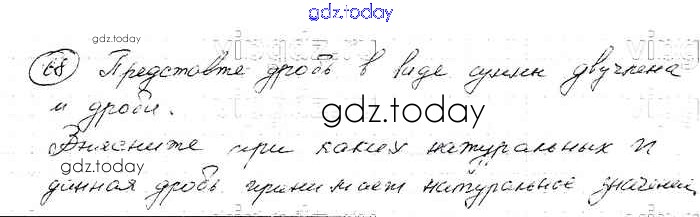 gdz.today
68 Представте дробь в виде суммы двучлена
gdz.today
и дроби.
gdz.today
Выясните при каких натуральных n
gdz.today
данная дробь принимает натуральное значение.